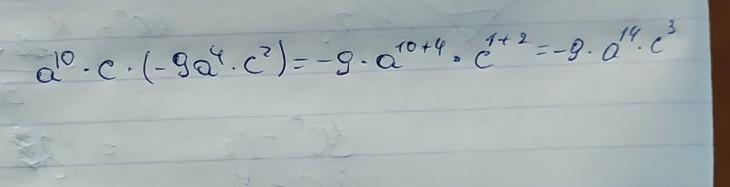 a¹⁰ · c · (-9a⁴ · c²) = -9 · a¹⁰⁺⁴ · c¹⁺² = -9 · a¹⁴ · c³